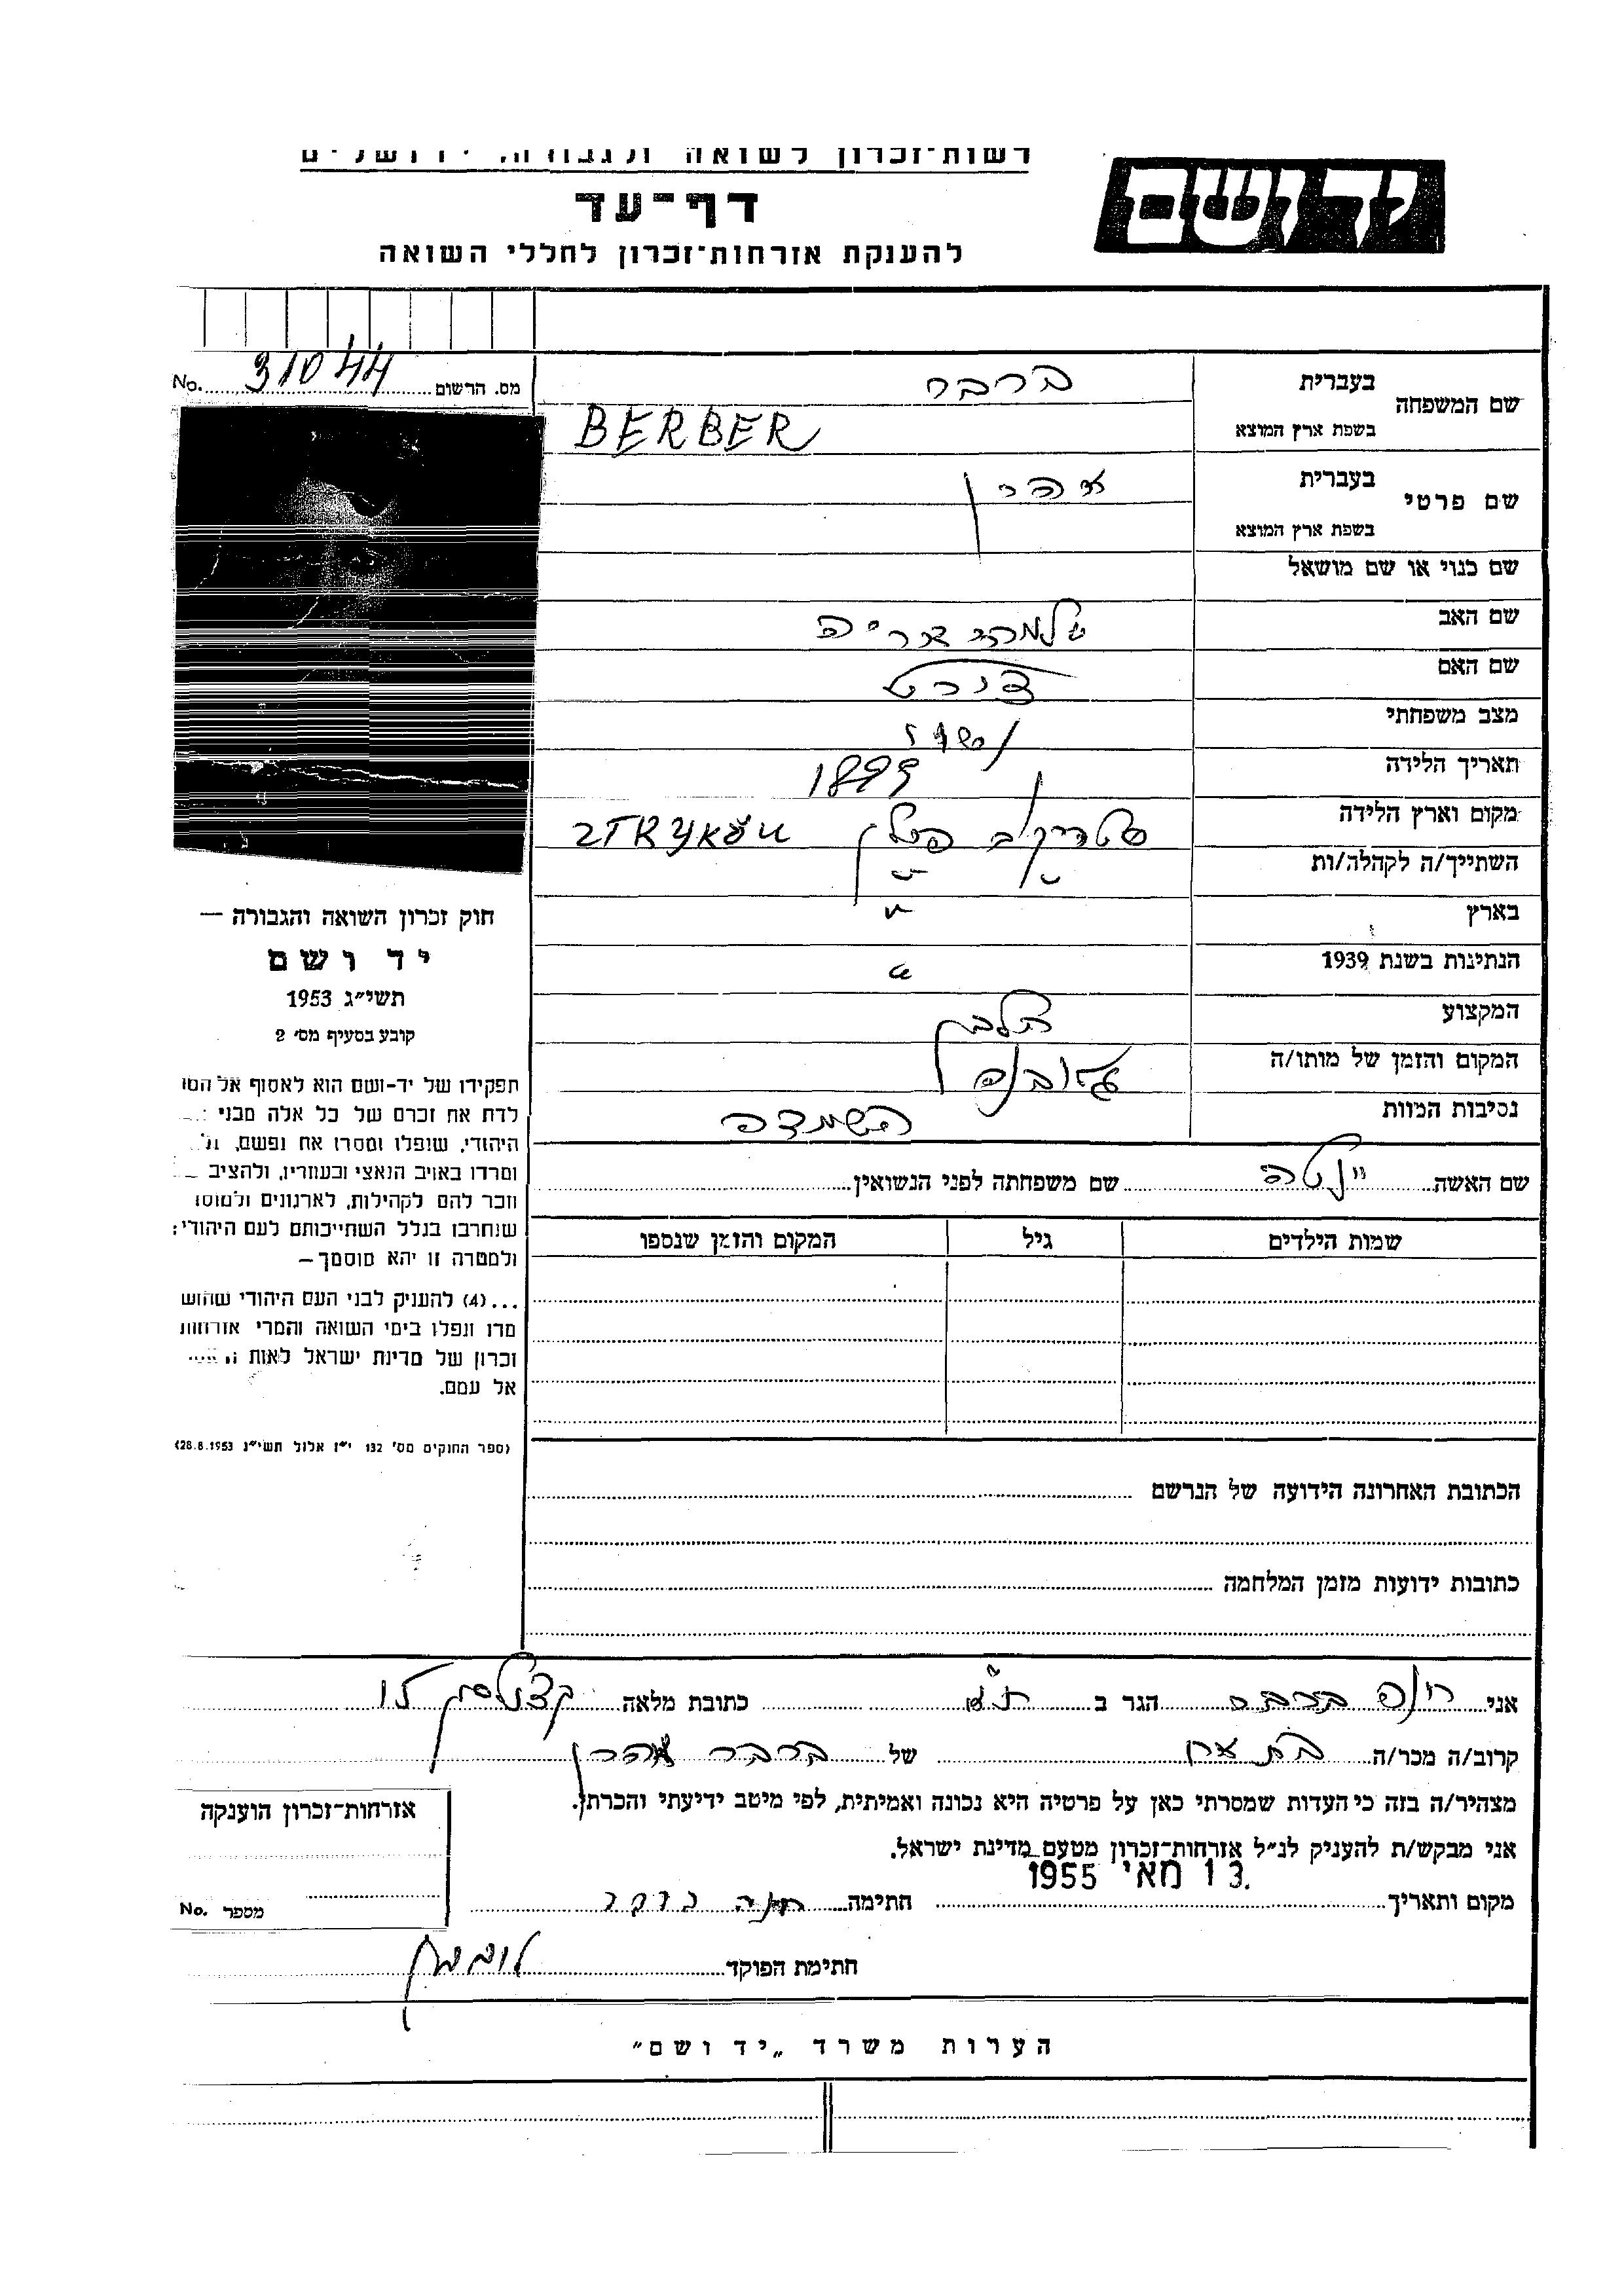 רשות־זכרון לשואה ולגבורה, ירושלים
יד ושם
דף־עד
להענקת אזרחות־זכרון לחללי השואה
מס. הרשום 31044 No.
שם המשפחה
בעברית ברבר
בשפת ארץ המוצא BERBER
שם פרטי
בעברית אהרן
בשפת ארץ המוצא
שם כנוי או שם מושאל
שם האב שלמה אריה
שם האם
מצב משפחתי נשוי
תאריך הלידה 1899
מקום וארץ הלידה סטריקוב פולין STRYKÓW
השתייך/ה לקהלה/ות
בארץ
הנתינות בשנת 1939
המקצוע
המקום והזמן של מותו/ה
נסיבות המוות השמדה
שם האשה ינטה שם משפחתה לפני הנשואין
שמות הילדים גיל המקום והזמן שנספו
הכתובת האחרונה הידועה של הנרשם
כתובות ידועות מזמן המלחמה
חוק זכרון השואה והגבורה —
יד ושם
תשי״ג 1953
קובע בסעיף מס׳ 2
תפקידו של יד-ושם הוא לאסוף אל המו
לדת את זכרם של כל אלה מבני
היהודי, שנפלו ומסרו את נפשם,
ומרדו באויב הנאצי ובעוזריו, ולהציב
וזכר להם לקהילות, לארגונים ולמוסו
שנחרבו בגלל השתייכותם לעם היהודי;
ולמטרה זו יהא מוסמך—
...(4) להעניק לבני העם היהודי שהוש
מדו ונפלו בימי השואה והמרי אזרחות
זכרון של מדינת ישראל לאות
אל עמם.
(ספר החוקים מס׳ 132 י״ז אלול תשי״ג 28.8.1953)
אני חנה ברבר הגר ב ת״א כתובת מלאה 15
קרוב/ה מכר/ה של ברבר אהרן
מצהיר/ה בזה כי העדות שמסרתי כאן על פרטיה היא נכונה ואמיתית, לפי מיטב ידיעתי והכרתי.
אני מבקש/ת להעניק לנ״ל אזרחות־זכרון מטעם מדינת ישראל.
מקום ותאריך 13 מאי 1955 חתימה חנה ברבר
חתימת הפוקד
אזרחות־זכרון הוענקה
מספר No.
הערות משרד „יד ושם״